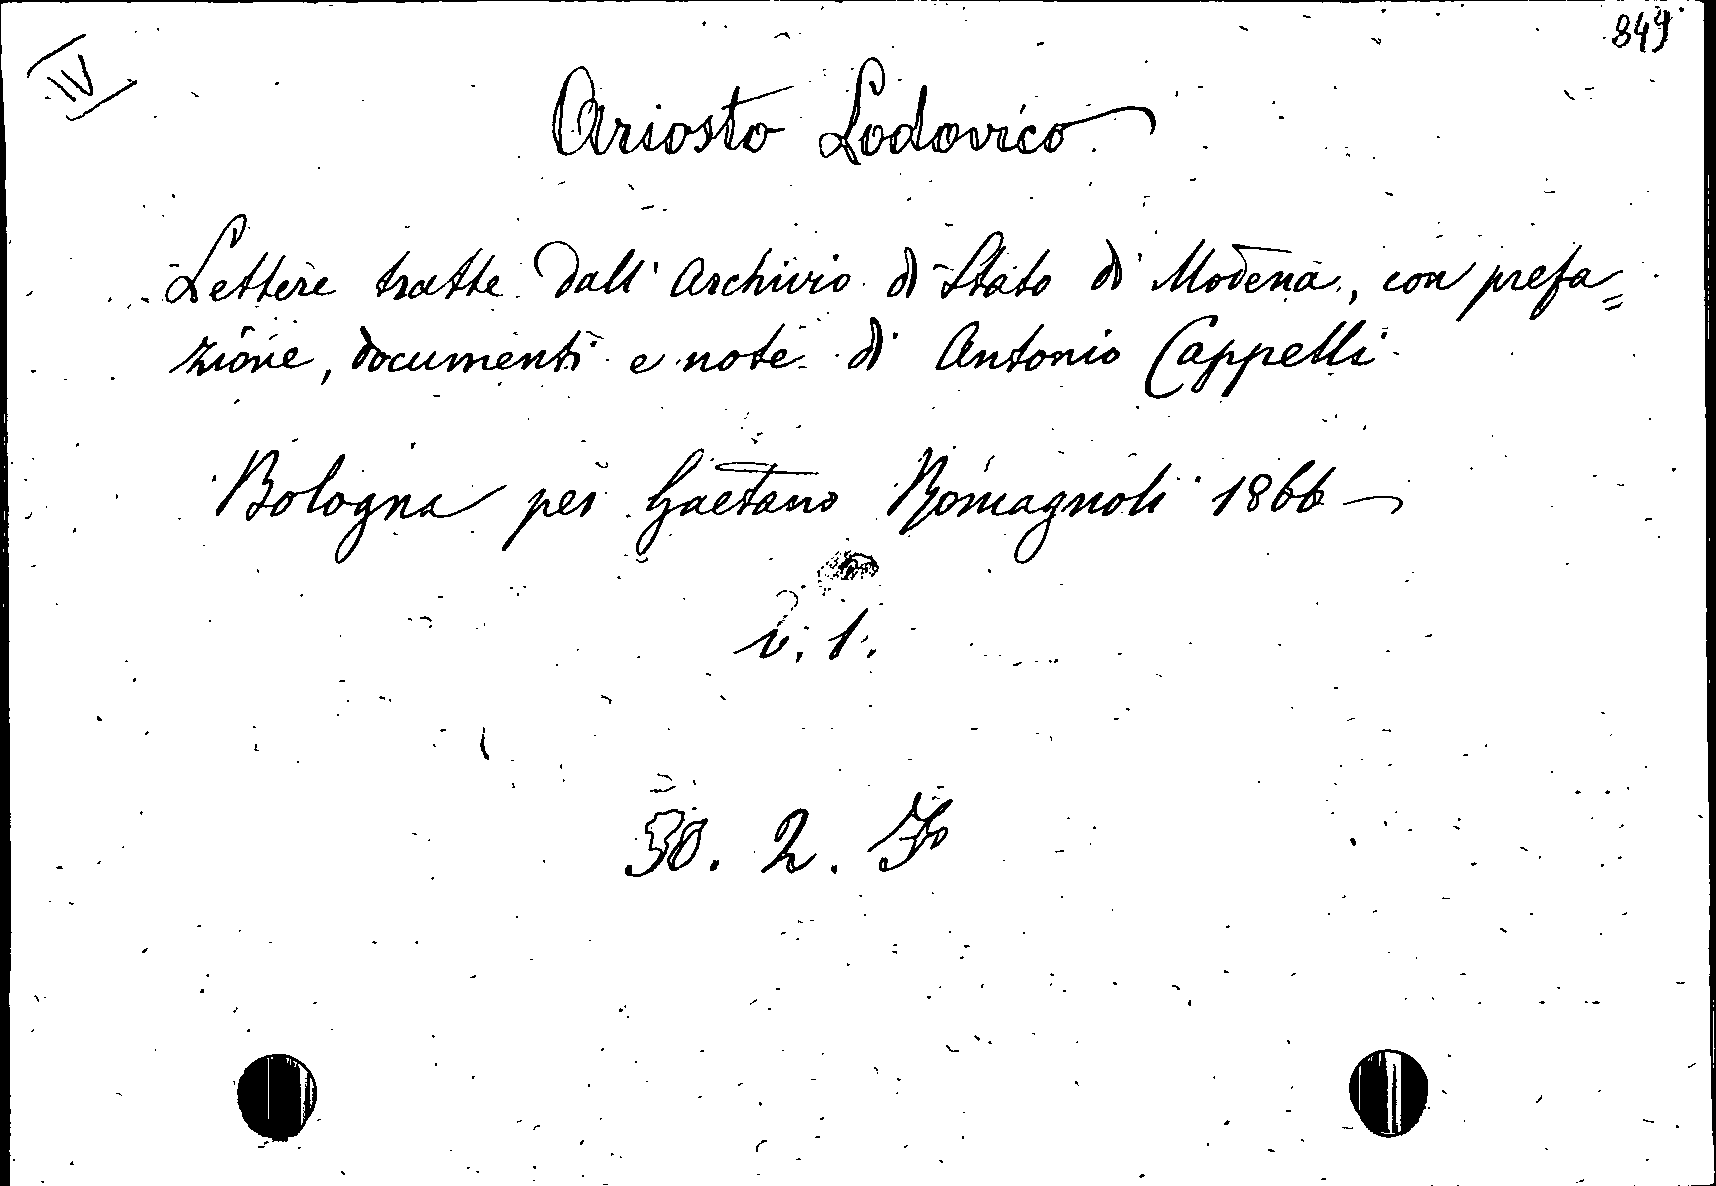 849
IV
Ariosto Lodovico
Lettere tratte dall'Archivio di Stato di Modena, con prefa=
zione, documenti e note di Antonio Cappelli
Bologna per Gaetano Romagnoli 1866
v. 1.
30. 2.